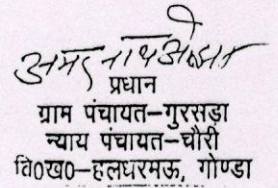 अमरनाथ ओझा
प्रधान
ग्राम पंचायत–गुरसड़ा
न्याय पंचायत–चौरी
वि०ख०–हलधरमऊ, गोण्डा